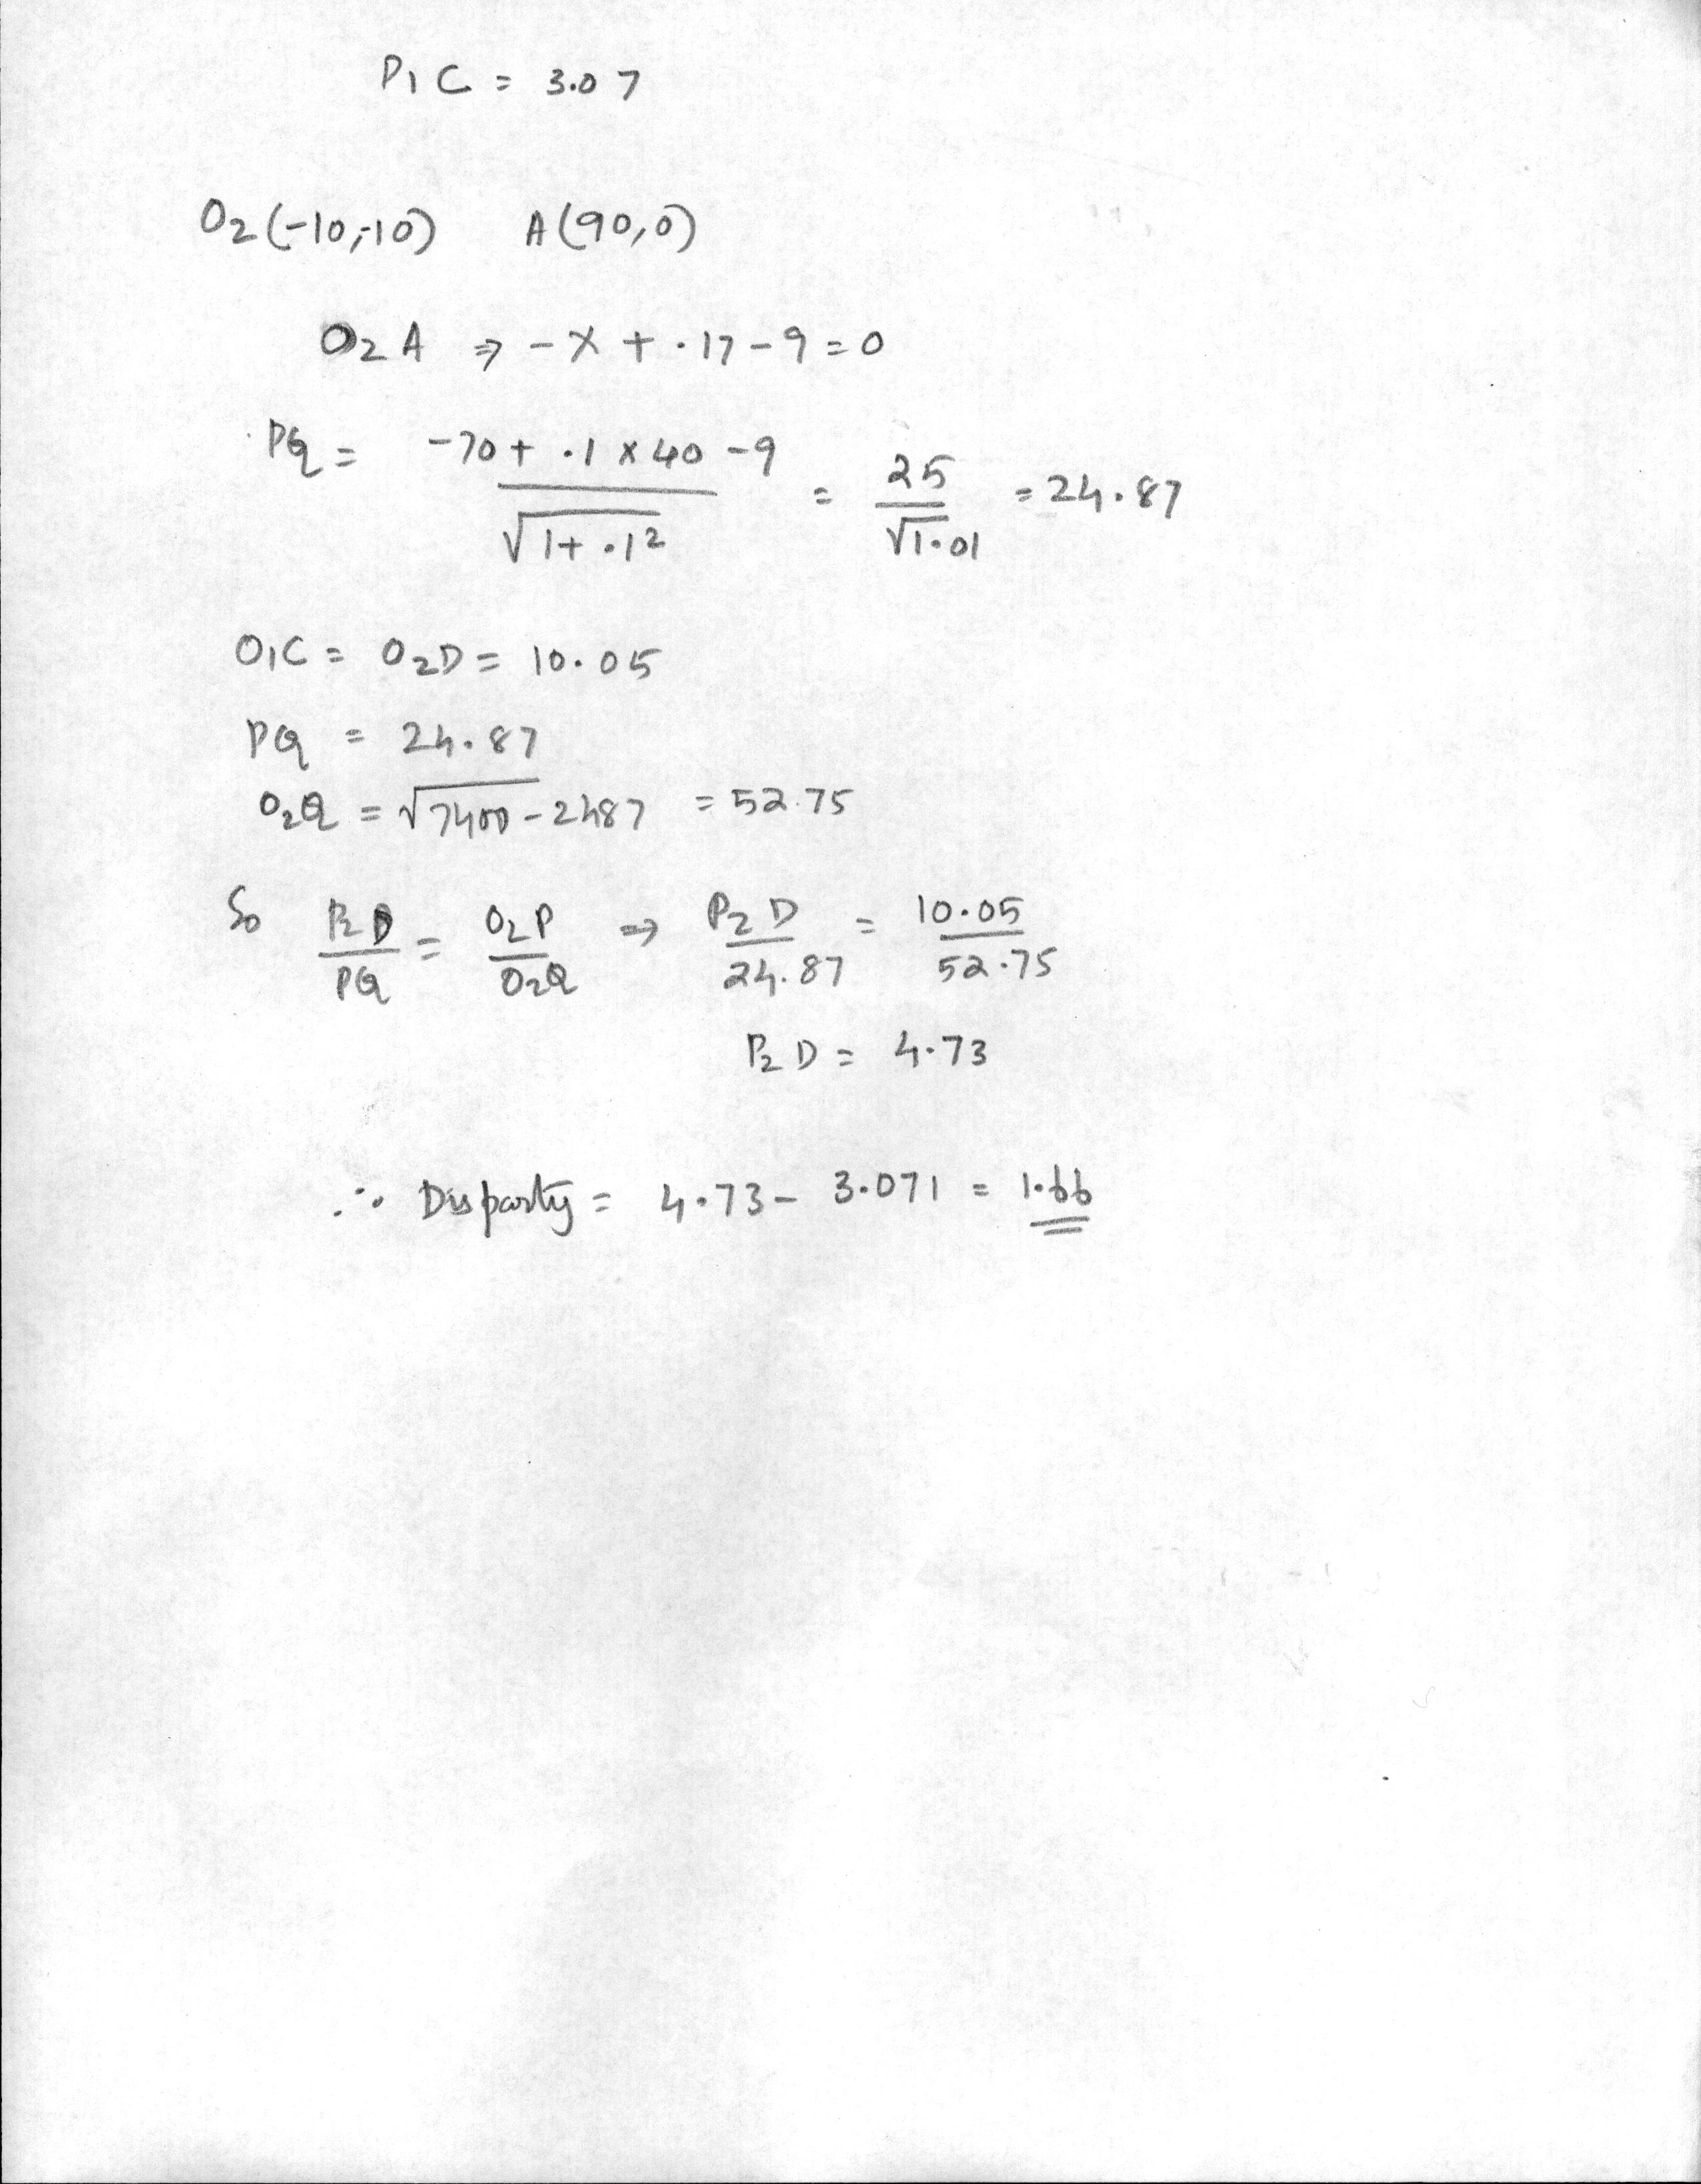 P1 C = 3.07
O2 (-10,-10) A (90,0)
O2 A ⇒ -x + .17 - 9 = 0
PQ = (-70 + .1 x 40 - 9) / √(1+.1²) = 25 / √1.01 = 24.87
O1C = O2D = 10.05
PQ = 24.87
O2Q = √7400-2487 = 52.75
So P2D / PQ = O2P / O2Q ⇒ P2D / 24.87 = 10.05 / 52.75
P2 D = 4.73
∴ Disparty = 4.73 - 3.071 = 1.66